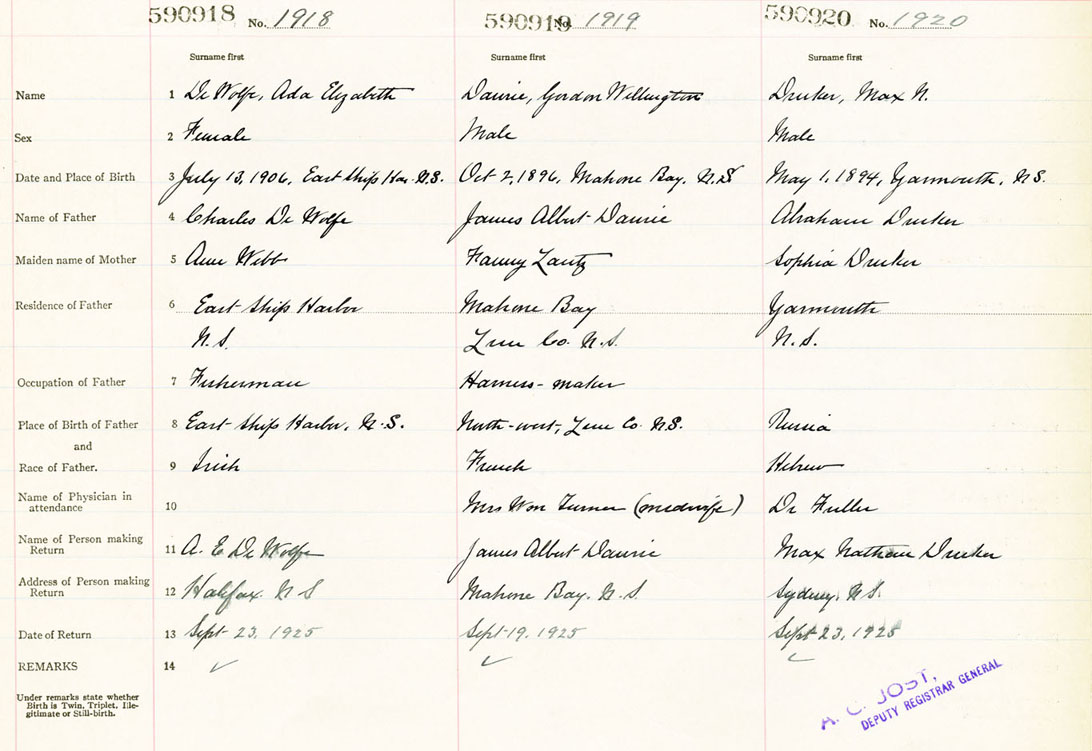 590918 No. 1918 590919 No. 1919 590920 No. 1920
Surname first Surname first Surname first
Name 1 De Wolfe, Ada Elizabeth Daurie, Gordon Wellington Druker, Max N.
Sex 2 Female Male Male
Date and Place of Birth 3 July 13, 1906, East Ship Har. N.S. Oct 2, 1896, Mahone Bay. N.S May 1, 1894, Yarmouth, N.S.
Name of Father 4 Charles De Wolfe James Albert Daurie Abraham Druker
Maiden name of Mother 5 Ann Webb Fanny Lantz Sophia Druker
Residence of Father 6 East Ship Harbor Mahone Bay Yarmouth
N.S. Lun Co. N.S. N.S.
Occupation of Father 7 Fisherman Harness-maker
Place of Birth of Father 8 East Ship Harbor, N.S. North-west, Lun Co. N.S. Russia
and
Race of Father. 9 Irish French Hebrew
Name of Physician in
attendance 10 Mrs Wm Turner (midwife) Dr Fuller
Name of Person making
Return 11 A. E De Wolfe James Albert Daurie Max Nathan Druker
Address of Person making
Return 12 Halifax. N S Mahone Bay. N.S Sydney. N.S.
Date of Return 13 Sept 23, 1925 Sept 19. 1925 Sept 23, 1925
REMARKS 14 ✓ ✓ ✓
Under remarks state whether
Birth is Twin, Triplet, Ille-
gitimate or Still-birth.
A. C. JOST,
DEPUTY REGISTRAR GENERAL